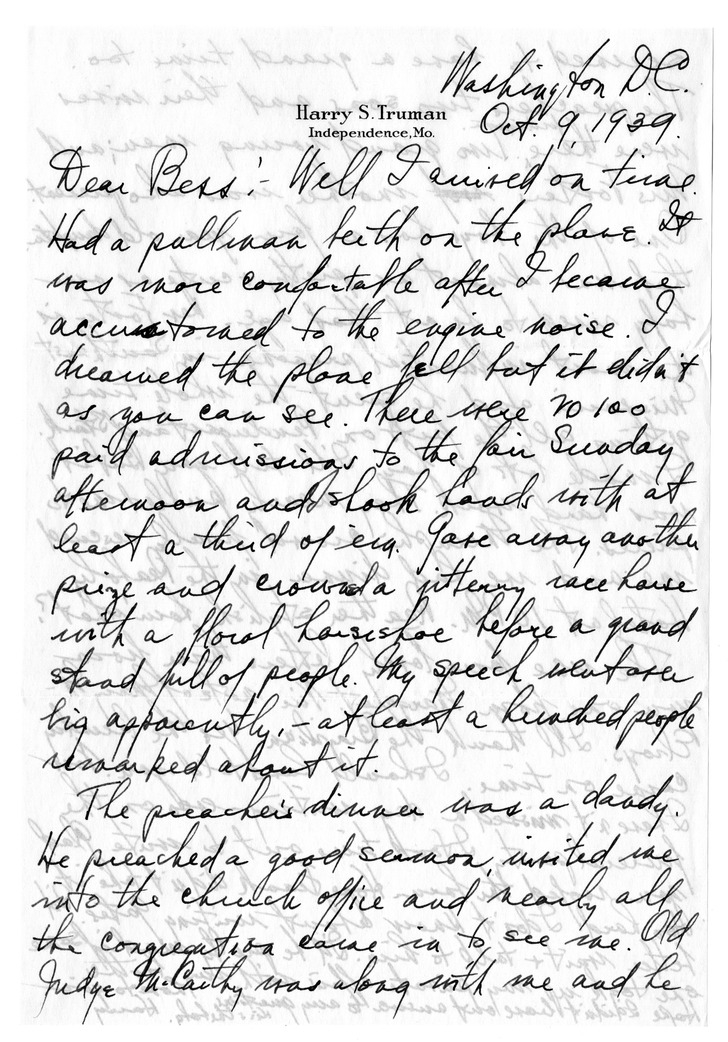 Washington D.C.
Harry S. Truman
Independence, Mo.
Oct. 9, 1939.
Dear Bess:- Well I arrived on time.
Had a pullman berth on the plane. It
was more comfortable after I became
accustomed to the engine noise. I
dreamed the plane fell but it didn't
as you can see. There were 20100
paid admissions to the fair Sunday
afternoon and I shook hands with at
least a third of em. Gave away another
prize and crowned a jittery race horse
with a floral horseshoe before a grand
stand full of people. My speech went over
big apparently, - at least a hundred people
remarked about it.
The preacher's dinner was a dandy.
He preached a good sermon, invited me
into the church office and nearly all
the congregation came in to see me. Old
Judge McCarthy was along with me and he